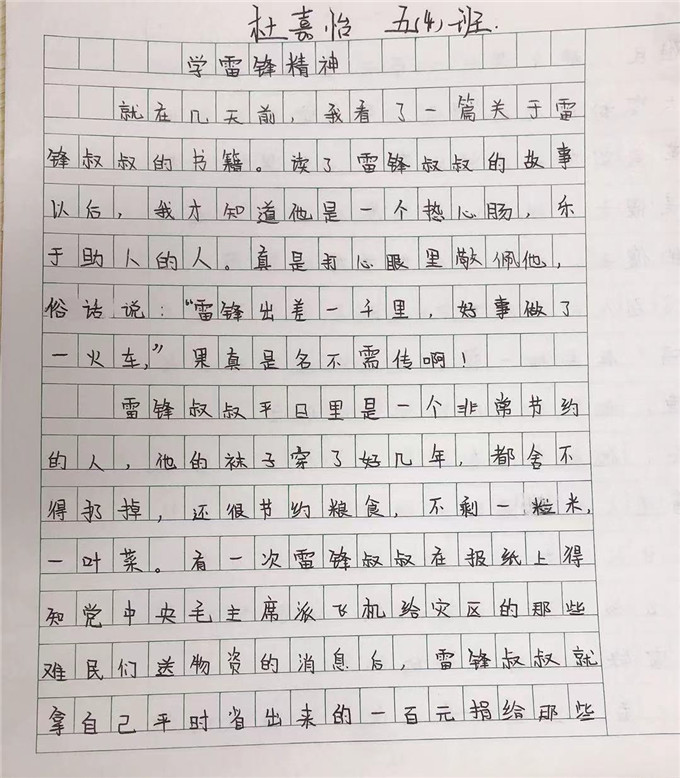 杜嘉怡 五(4)班.
学雷锋精神
就在几天前，我看了一篇关于雷
锋叔叔的书籍。读了雷锋叔叔的故事
以后，我才知道他是一个热心肠，乐
于助人的人。真是打心眼里敬佩他，
俗话说：“雷锋出差一千里，好事做了
一火车，”果真是名不需传啊！
雷锋叔叔平日里是一个非常节约
的人，他的袜子穿了好几年，都舍不
得扔掉，还很节约粮食，不剩一粒米，
一叶菜。有一次雷锋叔叔在报纸上得
知党中央毛主席派飞机给灾区的那些
难民们送物资的消息后，雷锋叔叔就
拿自己平时省出来的一百元捐给那些